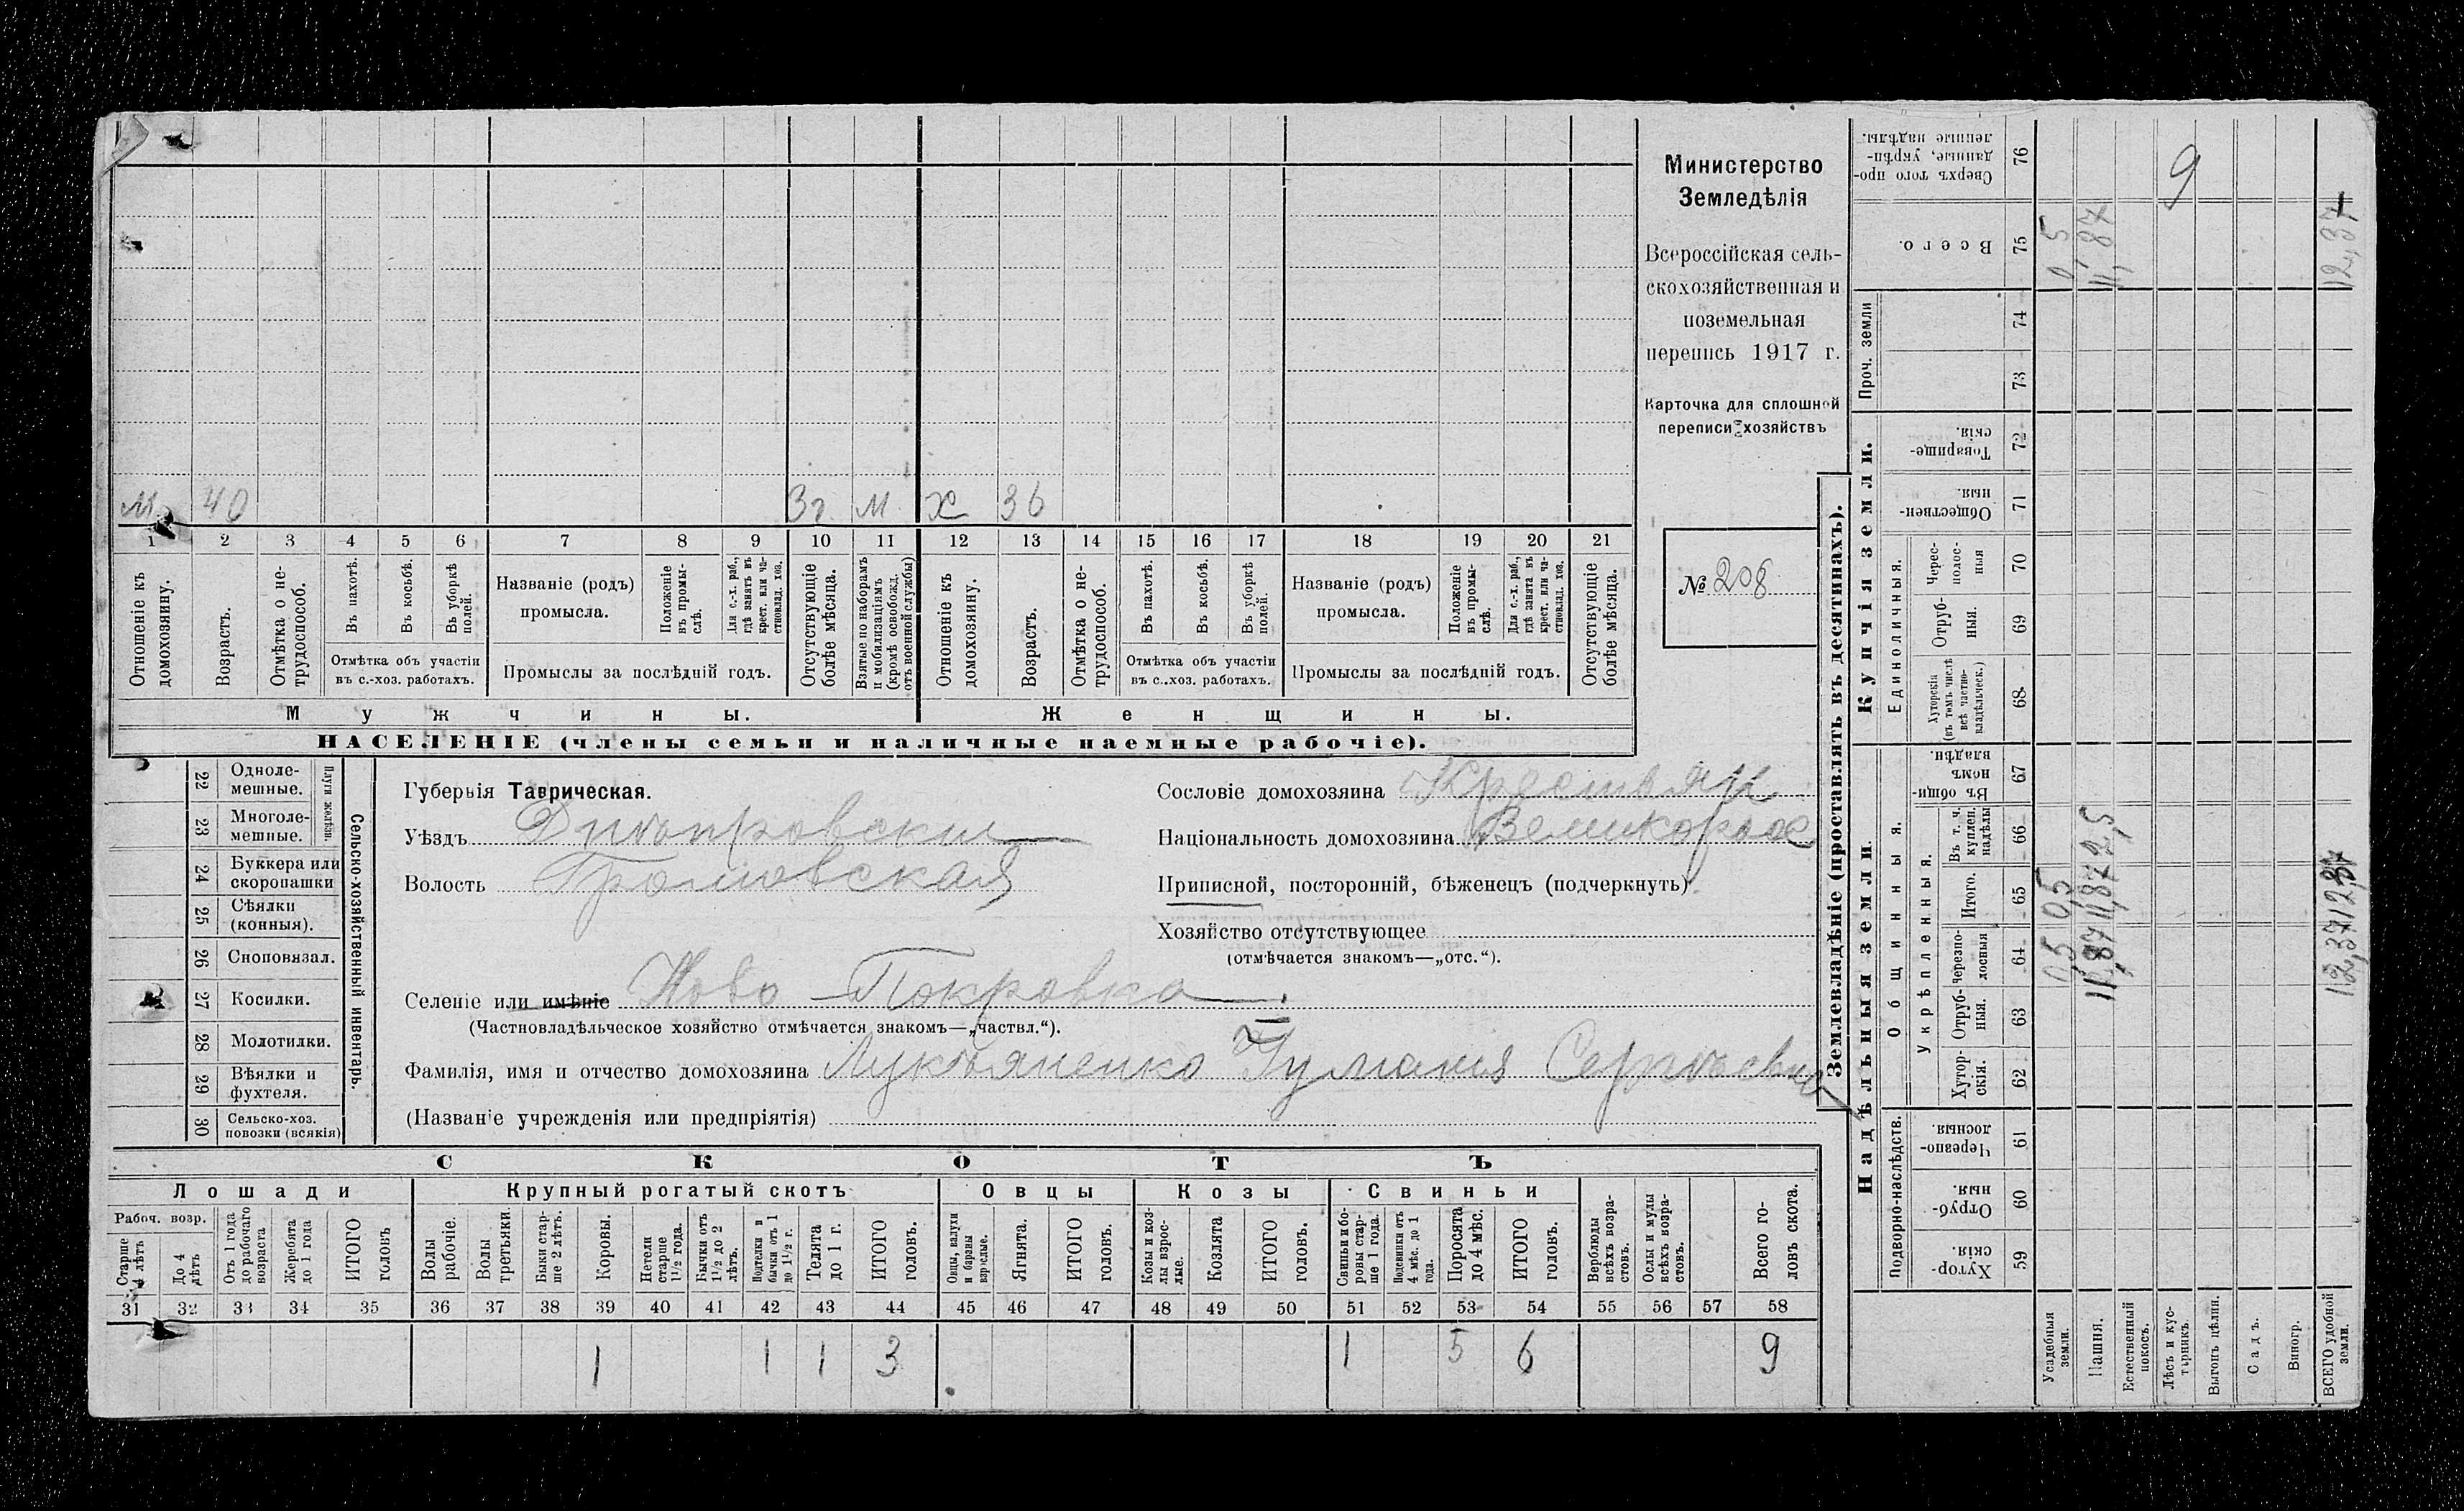 Министерство
Земледѣлія
Всероссійская сель-
скохозяйственная и
поземельная
перепись 1917 г.
Карточка для сплошной
переписи хозяйствъ
№ 208
м 40 3г м х 36
1 2 3 4 5 6 7 8 9 10 11 12 13 14 15 16 17 18 19 20 21
Отношеніе къ домохозяину.
Возрастъ.
Отмѣтка о не-трудоспособ.
Въ пахотѣ.
Въ косьбѣ.
Въ уборкѣ полей.
Отмѣтка объ участіи
въ с.-хоз. работахъ.
Названіе (родъ)
промысла.
Положеніе въ промы-слѣ.
Для с.-х. раб., гдѣ занятъ въ крест. или ча-стновлад. хоз.
Промыслы за послѣдній годъ.
Отсутствующіе болѣе мѣсяца.
Взятые по наборамъ и мобилизаціямъ (кромѣ освобожд. отъ военной службы)
Отношеніе къ домохозяину.
Возрастъ.
Отмѣтка о не-трудоспособ.
Въ пахотѣ.
Въ косьбѣ.
Въ уборкѣ полей.
Отмѣтка объ участіи
въ с.-хоз. работахъ.
Названіе (родъ)
промысла.
Положеніе въ промы-слѣ.
Для с.-х. раб., гдѣ занята въ крест. или ча-стновлад. хоз.
Промыслы за послѣдній годъ.
Отсутствующіе болѣе мѣсяца.
Мужчины. Женщины.
НАСЕЛЕНІЕ (члены семьи и наличные наемные рабочіе).
Сельско-хозяйственный инвентарь.
Плуги желѣзн.
22 Одноле-мешные.
23 Многоле-мешные.
24 Буккера или скоропашки
25 Сѣялки (конныя).
26 Сноповязал.
27 Косилки.
28 Молотилки.
29 Вѣялки и фухтеля.
30 Сельско-хоз. повозки (всякія)
Губернія Таврическая.
Уѣздъ Днѣпровскій
Волость Громовская
Селеніе или имѣніе Ново-Покровка
(Частновладѣльческое хозяйство отмѣчается знакомъ—„частвл.“).
Фамилія, имя и отчество домохозяина Лукьяненко Гумания Сергѣевич
(Названіе учрежденія или предпріятія)
Сословіе домохозяина Крестьян
Національность домохозяина Великорос
Приписной, посторонній, бѣженецъ (подчеркнуть)
Хозяйство отсутствующее
(отмѣчается знакомъ—„отс.“).
СКОТЪ
Лошади Крупный рогатый скотъ Овцы Козы Свиньи
Рабоч. возр.
Старше 4 лѣтъ
До 4 лѣтъ
Отъ 1 года до рабочаго возраста
Жеребята до 1 года
ИТОГО головъ
Волы рабочіе.
Волы третьяки.
Быки стар-ше 2 лѣтъ.
Коровы.
Нетели старше 1½ года.
Бычки отъ 1½ до 2 лѣтъ.
Подтелки и бычки отъ 1 до 1½ г.
Телята до 1 г.
ИТОГО головъ.
Овцы, валухи и бараны взрослые.
Ягнята.
ИТОГО головъ.
Козы и коз-лы взрос-лые.
Козлята
ИТОГО головъ.
Свиньи и бо-ровы стар-ше 1 года.
Подсвинки отъ 4 мѣс. до 1 года.
Поросята до 4 мѣс.
ИТОГО головъ.
Верблюды всѣхъ возра-стовъ.
Ослы и мулы всѣхъ возра-стовъ.
Всего го-ловъ скота.
31 32 33 34 35 36 37 38 39 40 41 42 43 44 45 46 47 48 49 50 51 52 53 54 55 56 57 58
1 1 1 3 1 5 6 9
Землевладѣніе (проставлять въ десятинахъ).
Надѣльныя земли.
Купчія земли.
Проч. земли
Подворно-наслѣдств.
Общинныя.
Укрѣпленныя.
Единоличныя.
Хутор-скія. 59
Отруб-ныя. 60
Черезпо-лосныя. 61
Хутор-скія. 62
Отруб-ныя. 63
Черезпо-лосныя 64
Итого. 65
Въ т. ч. куплен. надѣлы 66
Въ общи-номъ владѣн. 67
Хуторскія (въ томъ числѣ всѣ частно-владѣльческ.) 68
Отруб-ныя. 69
Черес-полос-ныя 70
Обществен-ныя. 71
Товарище-скія. 72
73
74
Всего. 75
Сверхъ того про-данные, укрѣп-ленные надѣлы. 76
Усадебныя земли. 0,5 0,5 0,5
Пашня. 11,87 11,87 2,5 11,87
Естественный покосъ.
Лѣсъ и кус-тарникъ. 9
Выгонъ цѣлин.
Садъ.
Виногр.
ВСЕГО удобной земли. 12,37 12,37 12,37